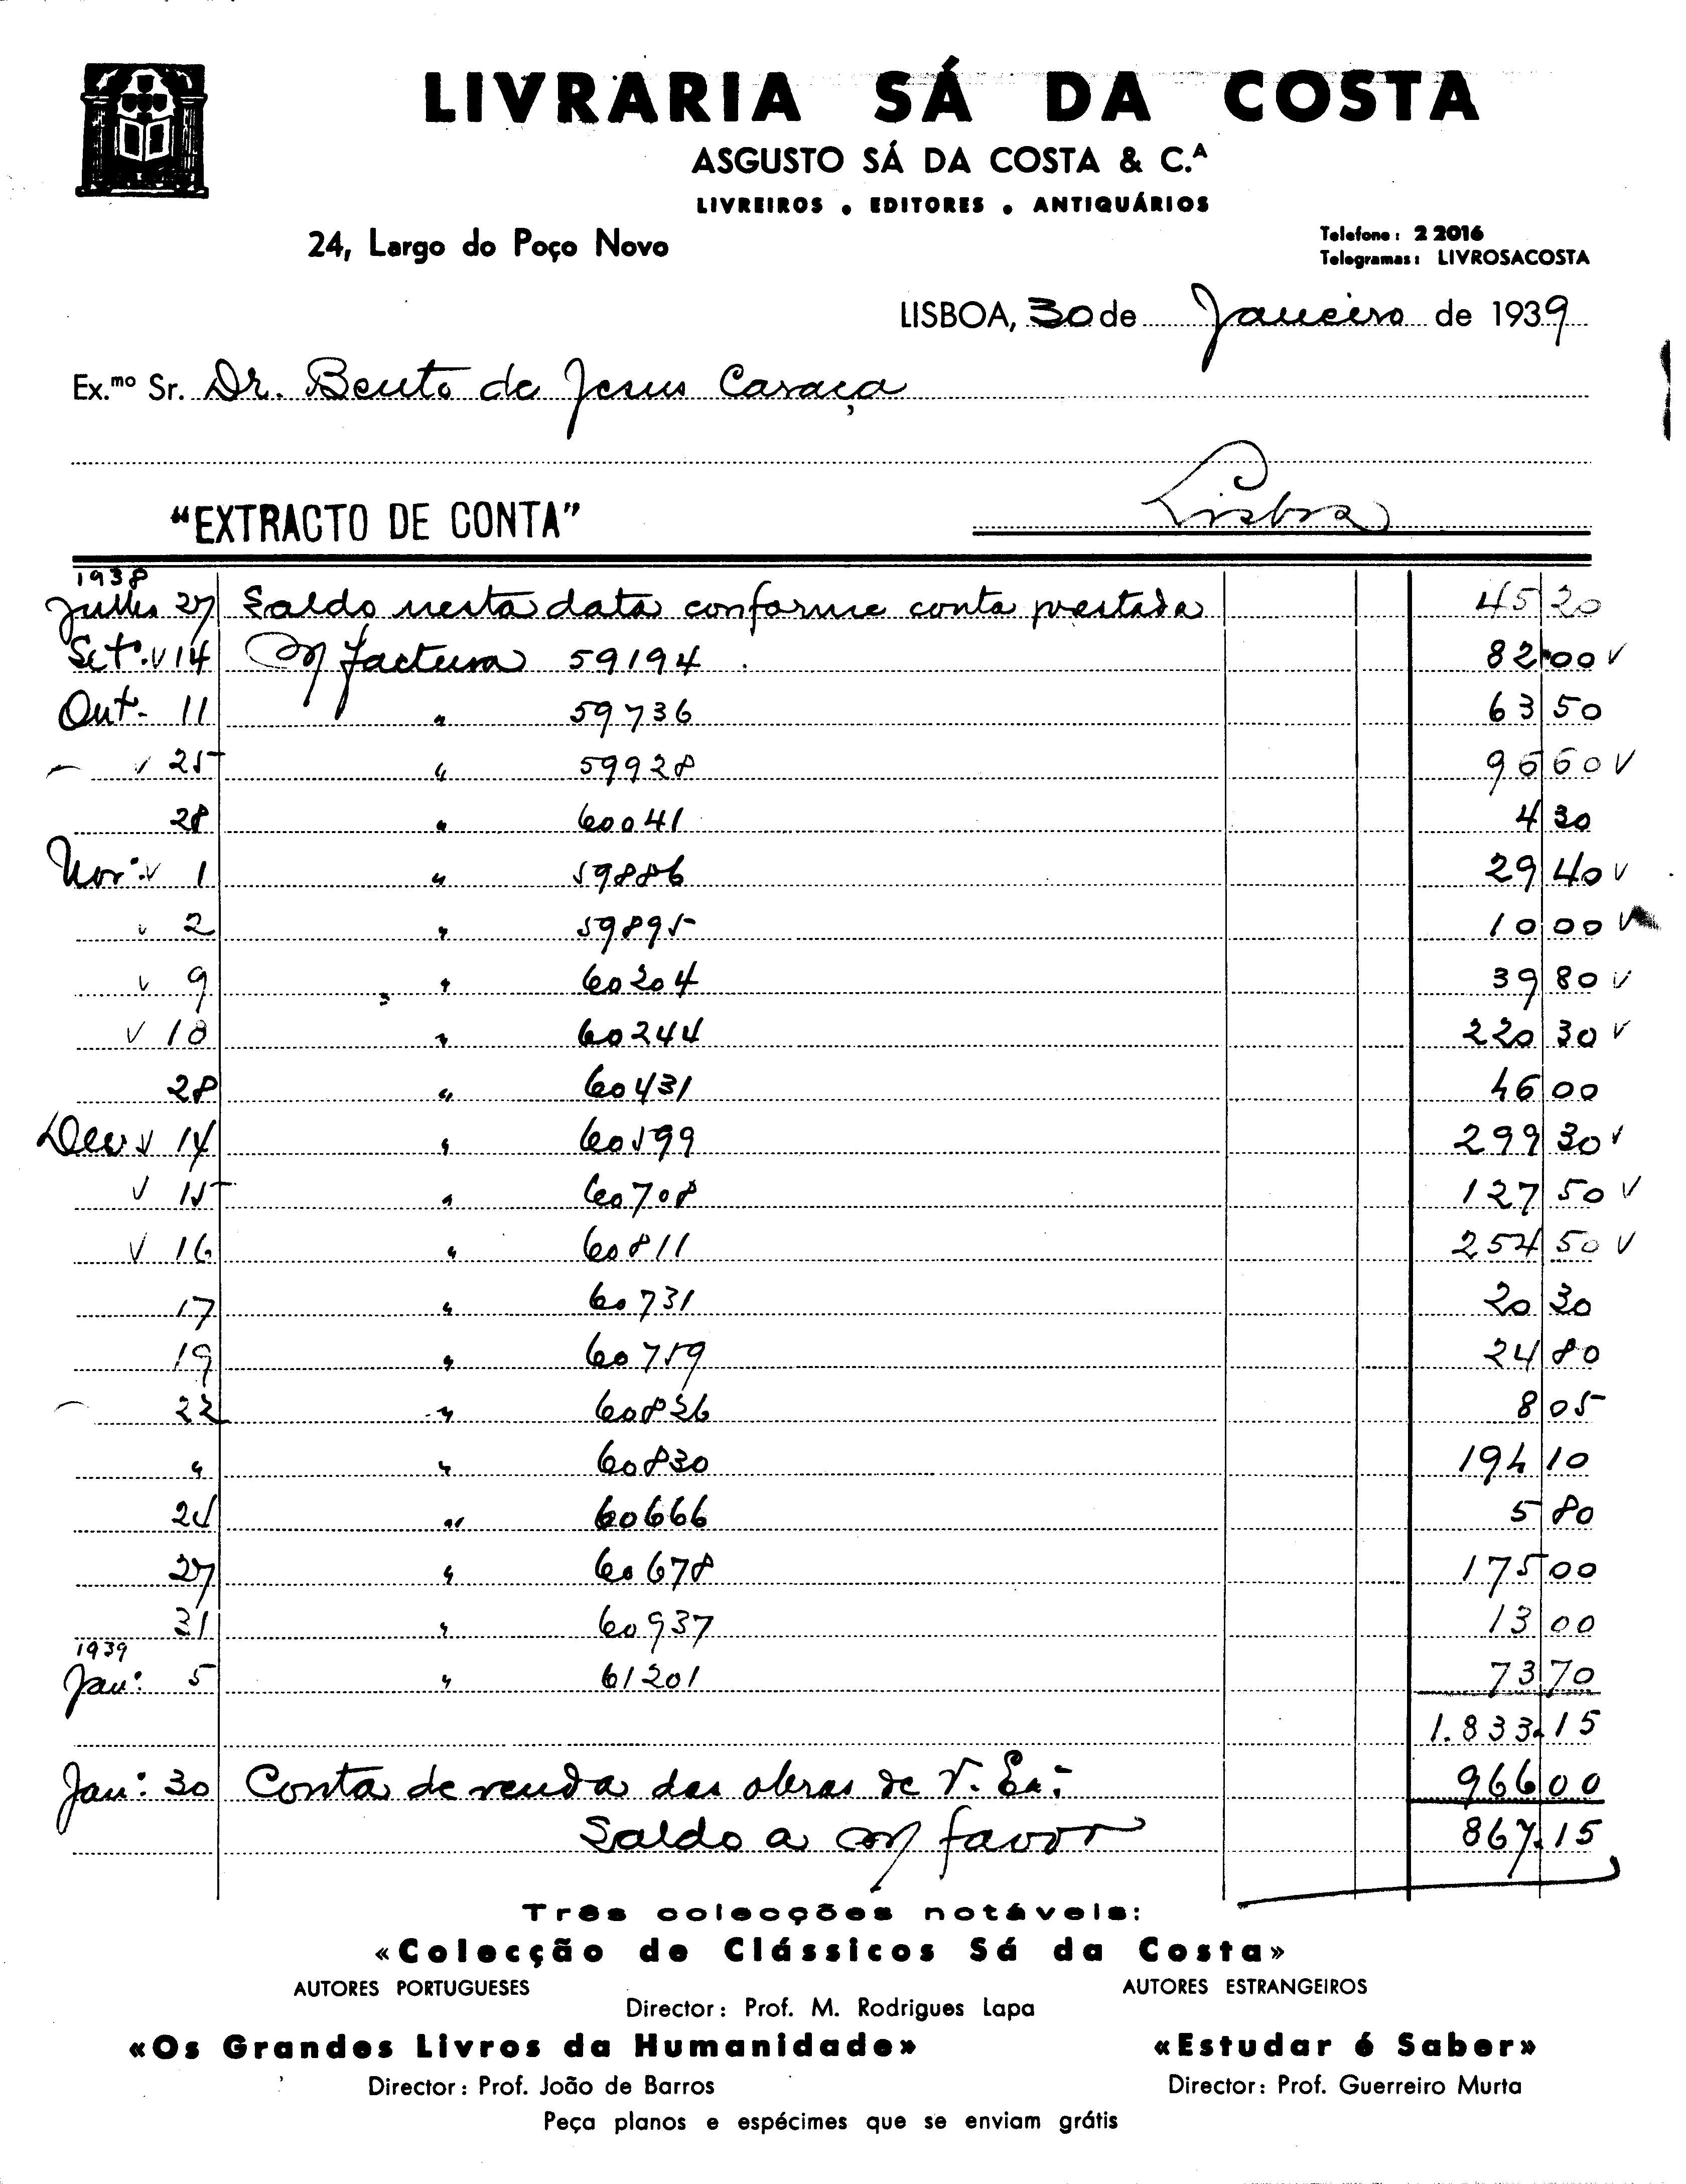 LIVRARIA SÁ DA COSTA
ASGUSTO SÁ DA COSTA & C.ᴬ
LIVREIROS • EDITORES • ANTIQUÁRIOS
24, Largo do Poço Novo
Telefone: 2 2016
Telegramas: LIVROSACOSTA
LISBOA, 30 de Janeiro de 1939
Ex.mo Sr. Dr. Bento de Jesus Caraça
Lisboa
"EXTRACTO DE CONTA"
1938
Julho 27 Saldo nesta data conforme conta prestada 45 20
Set.º v 14 M factura 59194 82 00 v
Out. 11 " 59736 63 50
v 25 " 59928 96 60 v
28 " 60041 4 30
Nov.º v 1 " 59886 29 40 v
v 2 " 59895 10 00 v
v 9 " 60204 39 80 v
v 18 " 60244 220 30 v
28 " 60431 46 00
Dez v 14 " 60599 299 30 v
v 15 " 60708 127 50 v
v 16 " 60811 254 50 v
17 " 60731 20 30
19 " 60759 24 80
22 " 60856 8 05
" " 60830 194 10
24 " 60666 5 80
27 " 60678 175 00
31 " 60937 13 00
1939
Jan.º 5 " 61201 73 70
1.833.15
Jan.º 30 Conta de venda das obras de V. Ex.ª 966 00
Saldo a M favor 867.15
Três colecções notáveis:
«Colecção de Clássicos Sá da Costa»
AUTORES PORTUGUESES AUTORES ESTRANGEIROS
Director: Prof. M. Rodrigues Lapa
«Os Grandes Livros da Humanidade» «Estudar é Saber»
Director: Prof. João de Barros Director: Prof. Guerreiro Murta
Peça planos e espécimes que se enviam grátis